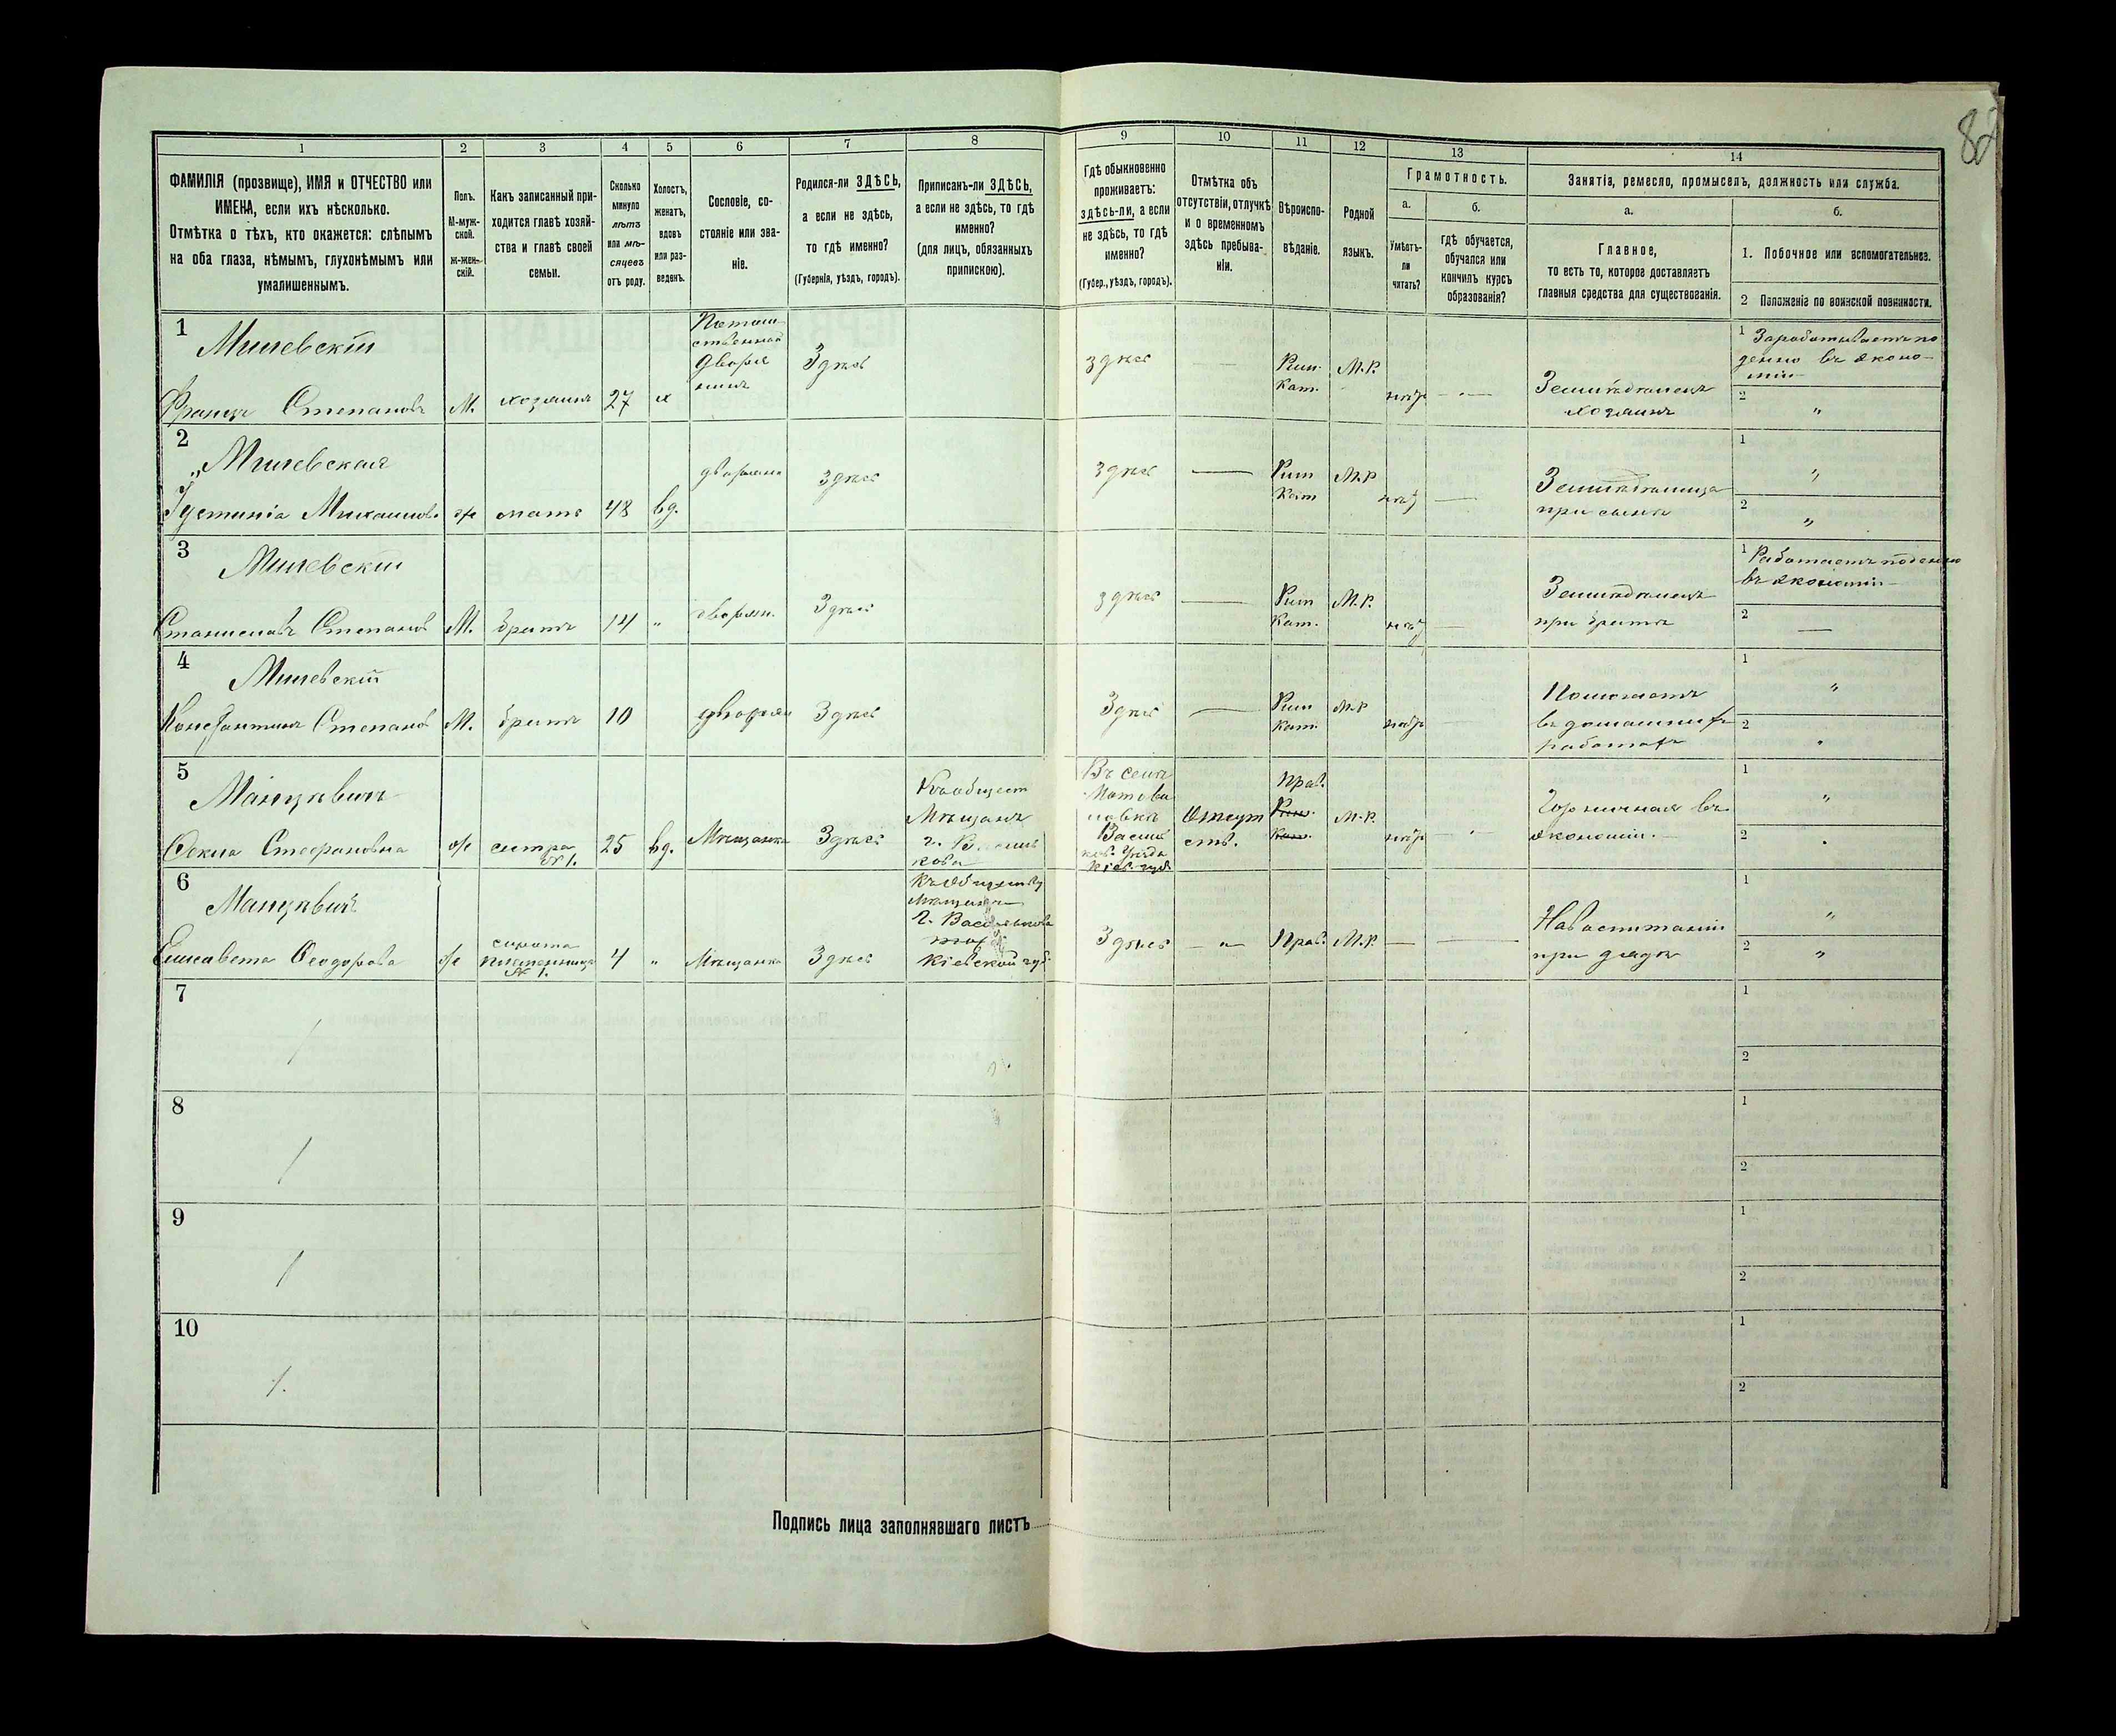 82
1 2 3 4 5 6 7 8 9 10 11 12 13 14
ФАМИЛІЯ (прозвище), ИМЯ и ОТЧЕСТВО или
ИМЕНА, если ихъ нѣсколько.
Отмѣтка о тѣхъ, кто окажется: слѣпымъ
на оба глаза, нѣмымъ, глухонѣмымъ или
умалишеннымъ.
Полъ.
М-муж-
ской.
Ж-жен-
скій.
Какъ записанный при-
ходится главѣ хозяй-
ства и главѣ своей
семьи.
Сколько
минуло
лѣтъ
или мѣ-
сяцевъ
отъ роду.
Холостъ,
женатъ,
вдовъ
или раз-
веденъ.
Сословіе, со-
стояніе или зва-
ніе.
Родился-ли ЗДѢСЬ,
а если не здѣсь,
то гдѣ именно?
(Губернія, уѣздъ, городъ).
Приписанъ-ли ЗДѢСЬ,
а если не здѣсь, то гдѣ
именно?
(для лицъ, обязанныхъ
припискою).
Гдѣ обыкновенно
проживаетъ:
здѣсь-ли, а если
не здѣсь, то гдѣ
именно?
(Губер., уѣздъ, городъ).
Отмѣтка объ
отсутствіи, отлучкѣ
и о временномъ
здѣсь пребыва-
ніи.
Вѣроиспо-
вѣданіе.
Родной
языкъ.
Грамотность.
а.
Умѣетъ-
ли
читать?
б.
гдѣ обучается,
обучался или
кончилъ курсъ
образованія?
Занятіа, ремесло, промыселъ, должность или служба.
а.
Главное,
то есть то, которое доставляетъ
главныя средства для существованія.
б.
1. Побочное или вспомогательное.
2 Положеніе по воинской повинности.
1
Милевскій
Францъ Степановъ
М.
хозяинъ
27
х
Потом-
ственный
Дворя
нинъ
Здѣсь
здѣсь
—
Рим.
Кат.
М.Р.
нѣтъ
— " —
Землѣделецъ
хозяинъ
1 Зарабатываетъ по
денно въ эконо-
міи
2 "
2
Милевская
Іустинія Михаилова
ж
мать
48
вд.
дворянка
здѣсь
здѣсь
—
Рим
Кат
М.Р
нѣтъ
—
Землѣделица
при сынѣ
1 "
2 "
3
Милевскій
Станиславъ Степановъ
М.
братъ
14
"
дворян.
Здѣсь
здѣсь
—
Рим
Кат.
М.Р.
нѣтъ
—
Землѣделецъ
при братѣ
1 Работаетъ поденно
въ экономіи
2 —
4
Милевскій
Константинъ Степановъ
М.
братъ
10
дворян
Здѣсь
Здѣсь
—
Рим
Кат.
М.Р
нѣтъ
Помогаетъ
въ домашнихъ
работахъ
1 "
2
5
Мацкевичъ
Фекла Стефановна
ж
сестра
№1.
25
вд.
Мѣщанка
Здѣсь
Къ общест
Мѣщанъ
г. Василь
кова
Въ селѣ
Васил
ков. Уѣзда
Кіев. губ
Отсут
ств.
Прав.
Рим.
Кат.
М.Р.
нѣтъ
Горничная въ
экономіи.
1 "
2
6
Мацкевичъ
Елисавета Феодорова
ж
сирота
племянница
№ 1.
4
"
Мѣщанка
Здѣсь
Къ обществу
Мѣщанъ
г. Василькова
Кіевской губ.
Здѣсь
— " —
Прав.
М.Р.
—
—
На воспитаніи
при дядѣ
1 "
2 "
7
1
2
8
1
2
9
1
2
10
1
2
Подпись лица заполнявшаго листъ